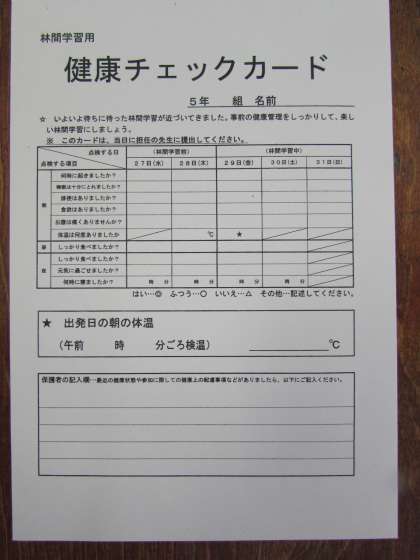 林間学習用
健康チェックカード
５年　組 名前
☆　いよいよ待ちに待った林間学習が近づいてきました。事前の健康管理をしっかりして、楽し
い林間学習にしましょう。
※　このカードは、当日に担任の先生に提出してください。
点検する日 （林間学習前） （林間学習中）
点検する項目 27日(水) 28日(木) 29日(金) 30日(土) 31日(日)
何時に起きましたか？
睡眠は十分にとれましたか？
排便はありましたか？
食欲はありましたか？
お腹は痛くありませんか？
朝
体温は何度ありましたか ℃ ★
昼 しっかり食べましたか？
しっかり食べましたか？
夜 元気に過ごせましたか？
何時に寝ましたか？ 時　分 時　分 時　分 時　分
はい…◎　ふつう…○　いいえ…△　その他…記述してください。
★　出発日の朝の体温
（午前　　時　　分ごろ検温） ℃
保護者の記入欄…最近の健康状態や参加に際しての健康上の配慮事項などがありましたら、以下にご記入ください。